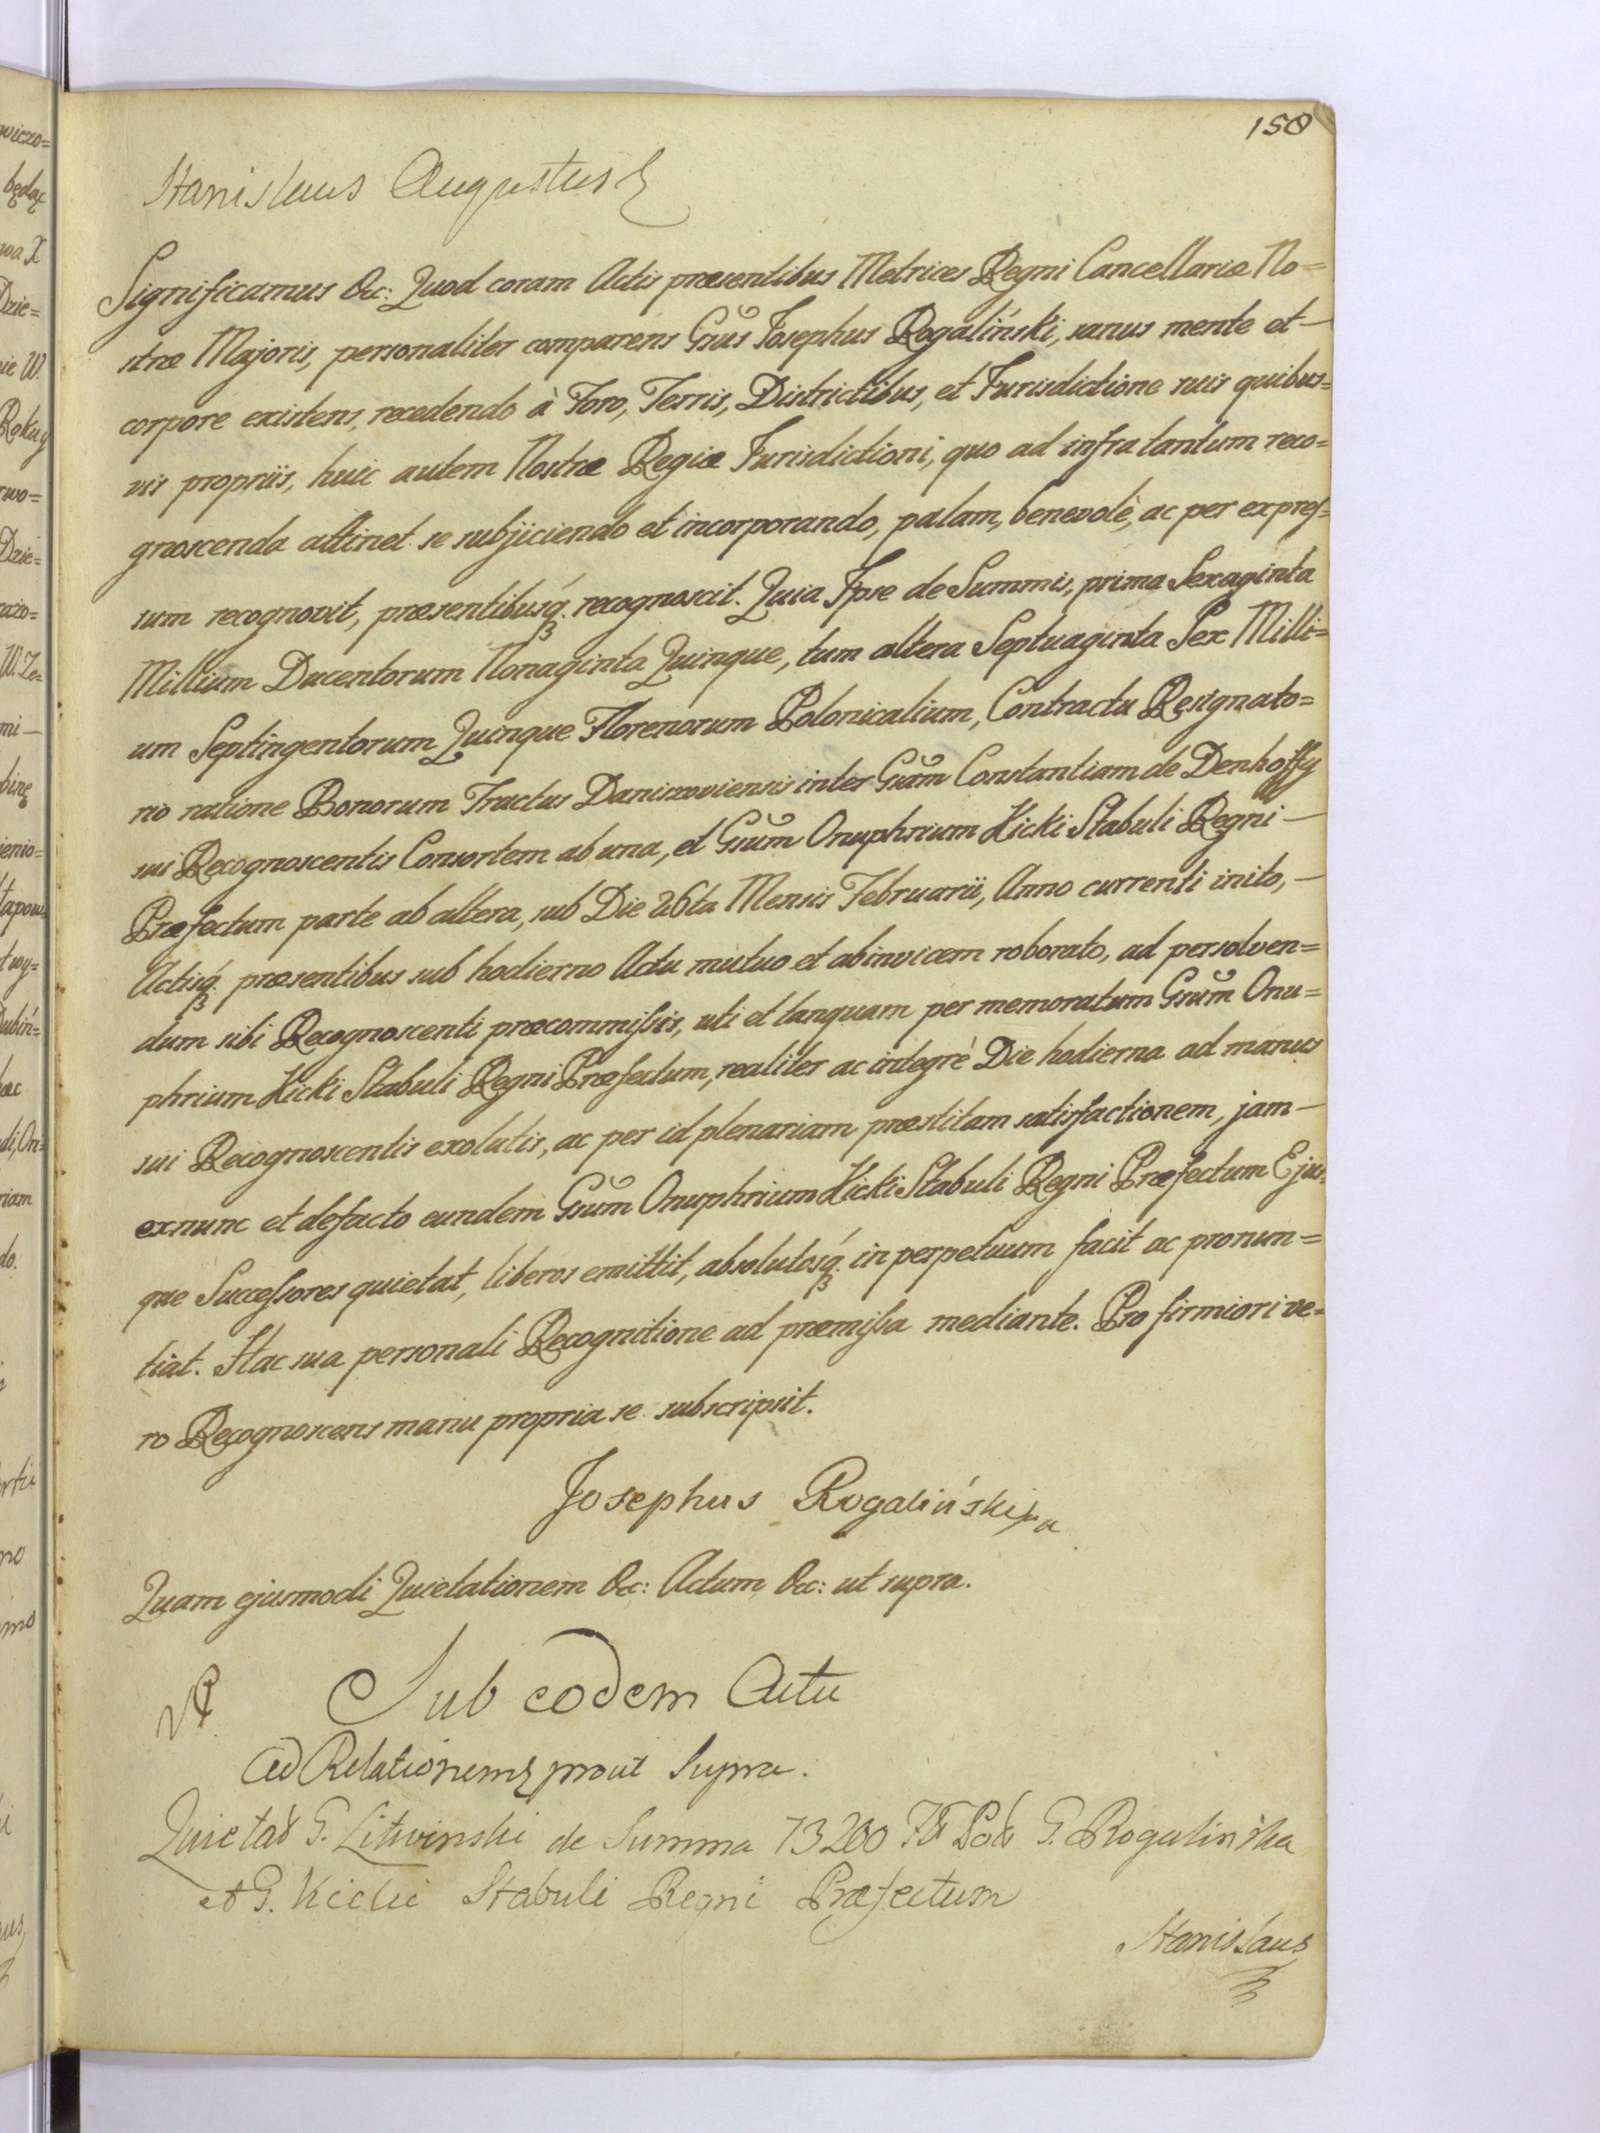 150
Stanislaus Augustus
Significamus &c: Quod coram Actis præsentibus Metrices Regni Cancellariæ No=
stræ Majoris, personaliter comparens Grũs Josephus Rogaliński, sanus mente et —
corpore existens, recedendo à Foro, Terris, Districtibus, et Jurisdictione suis quibus=
vis propriis, huic autem Nostræ Regiæ Jurisdictioni, quo ad infra tantum reco=
gnoscenda attinet se subjiciendo et incorporando, palam, benevolè, ac per expres=
sum recognovit, præsentibusq́ꝫ recognoscit. Quia Ipse de Summis, prima Sexaginta
Millium Ducentorum Nonaginta Quinque, tum altera Septuaginta Sex Milli=
um Septingentorum Quinque Florenorum Polonicalium, Contractu Resignato=
rio ratione Bonorum Tractus Daniszoviensis inter Grãm Constantiam de Denhoffy
sui Recognoscentis Consortem ab una, et Grũm Onuphrium Kicki Stabuli Regni —
Præfectum parte ab altera, sub Die 26ta Mensis Februarii, Anno currenti inito, —
Actisq́ꝫ præsentibus sub hodierno Actu mutuo et abinvicem roborato, ad persolven=
dum sibi Recognoscenti præcommissis, uti et tanquam per memoratum Grũm Onu=
phrium Kicki Stabuli Regni Præfectum, realiter ac integrè Die hodierna ad manus
sui Recognoscentis exolutis, ac per id plenariam præstitam satisfactionem, jam —
exnunc et defacto eundem Grũm Onuphrium Kicki Stabuli Regni Præfectum Ejus=
que Successores quietat, liberos emittit, absolutosq́ꝫ in perpetuum facit ac pronun=
tiat. Hac sua personali Recognitione ad præmissa mediante. Pro firmiori ve=
ro Recognoscens manu propria se subscripsit.
Josephus Rogaliński
Quam ejusmodi Quietationem &c: Actum &c: ut supra.
Sub eodem Actu
Ad Relationem prout Supra.
Quietat G. Litwinski de Summa 73200 Fl Pol G. Rogalinska
et G. Kicki Stabuli Regni Præfectum
Stanislaus